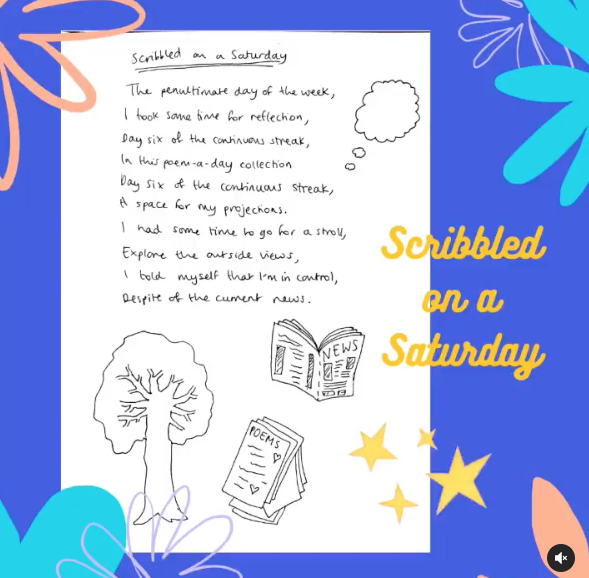 Scribbled on a Saturday
The penultimate day of the week,
I took some time for reflection,
Day six of the continuous streak,
In this poem-a-day collection
Day six of the continuous streak,
A space for my projections.
I had some time to go for a stroll,
Explore the outside views,
I told myself that I'm in control,
Despite of the current news.
Scribbled
on a
Saturday
NEWS
POEMS